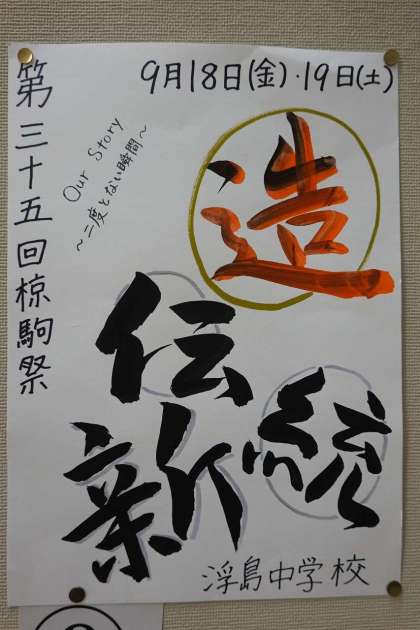 9月18日(金)・19日(土)
第三十五回椋駒祭
Our Story
〜二度とない瞬間〜
造
伝統
新
浮島中学校